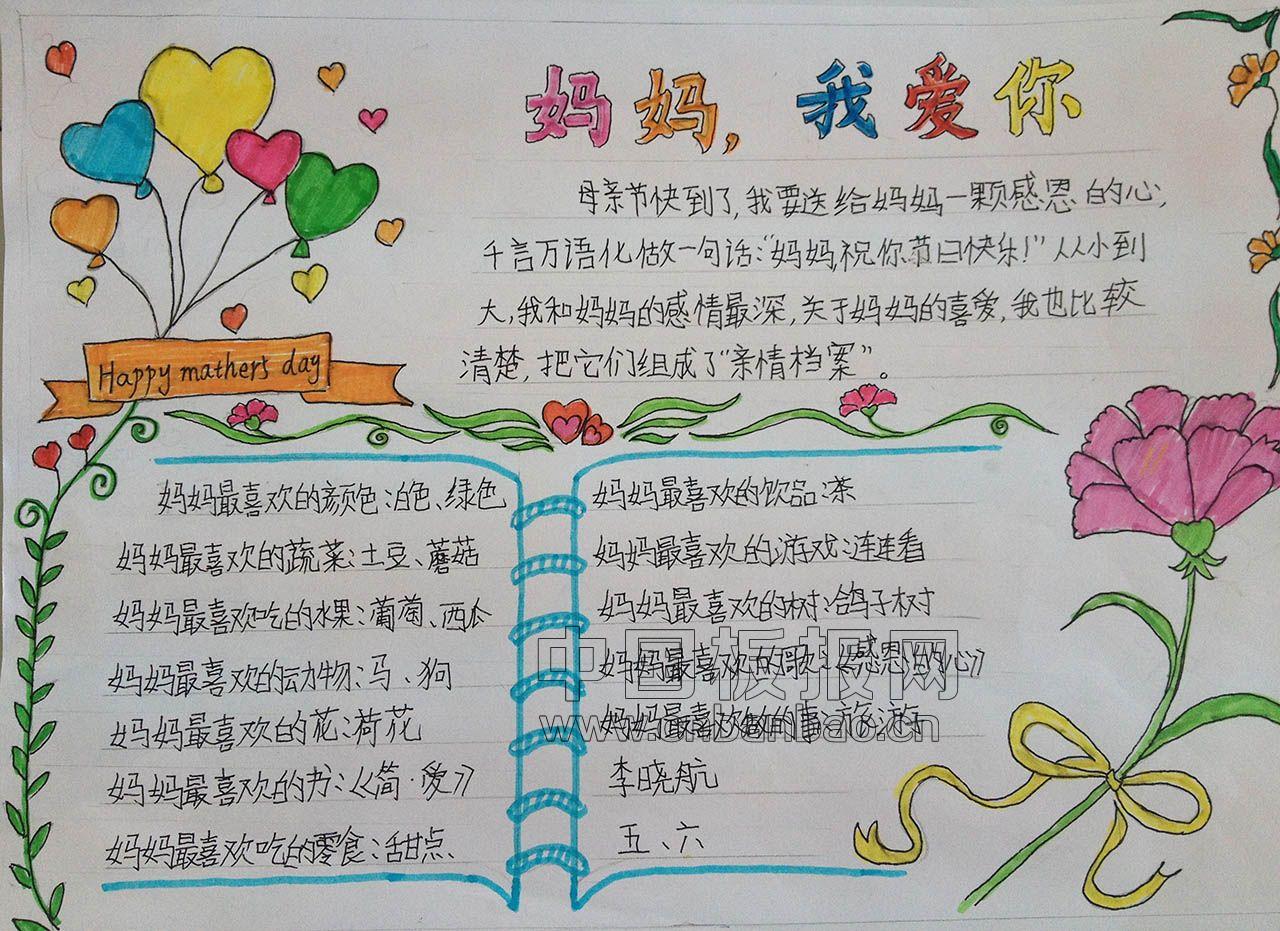 妈妈，我爱你
母亲节快到了，我要送给妈妈一颗感恩的心，
千言万语化做一句话：“妈妈，祝你节日快乐！”从小到
大，我和妈妈的感情最深，关于妈妈的喜爱，我也比较
清楚，把它们组成了“亲情档案”。
Happy mathers day
妈妈最喜欢的颜色：白色、绿色
妈妈最喜欢的蔬菜：土豆、蘑菇
妈妈最喜欢吃的水果：葡萄、西瓜
妈妈最喜欢的动物：马、狗
妈妈最喜欢的花：荷花
妈妈最喜欢的书：《简·爱》
妈妈最喜欢吃的零食：甜点、
妈妈最喜欢的饮品：茶
妈妈最喜欢的游戏：连连看
妈妈最喜欢的树：鸽子树
妈妈最喜欢的歌：《感恩的心》
妈妈最喜欢做的事：旅游
李晓航
五、六
中国板报网
www.cnbanbao.cn